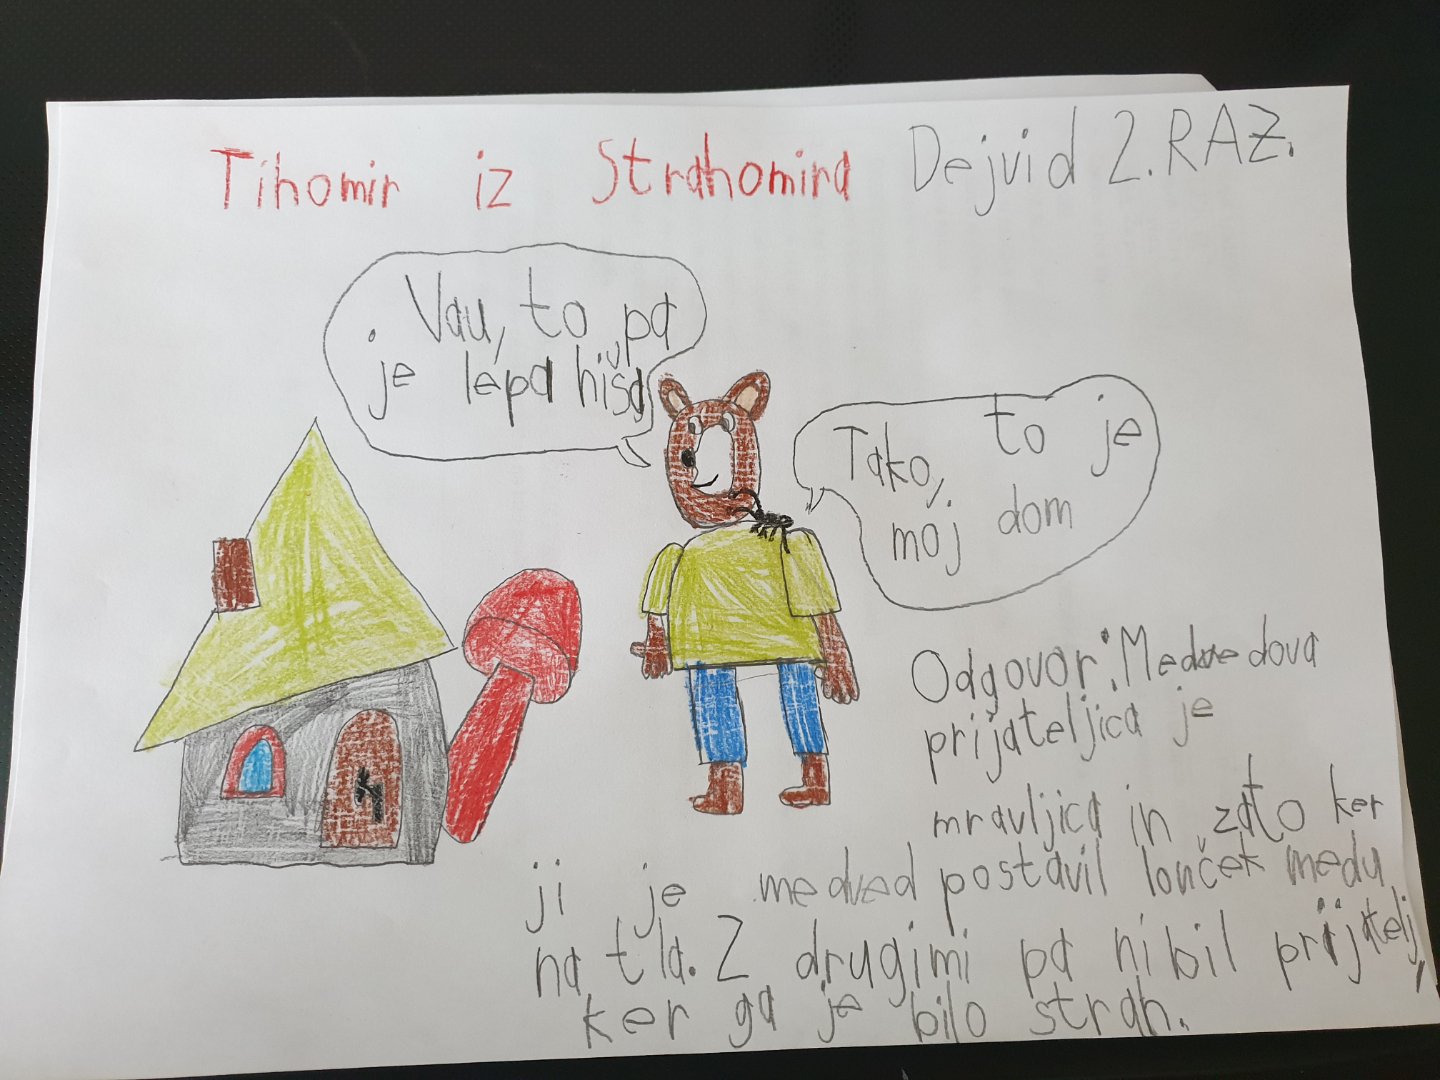 Tihomir iz Strahomira Dejvid 2. RAZ.
Vau, to pa
je lepa hiša
Tako, to je
moj dom
Odgovor: Medvedova
prijateljica je
mravljica in zato ker
ji je medved postavil lonček medu
na tla. Z drugimi pa ni bil prijatelj,
ker ga je bilo strah.